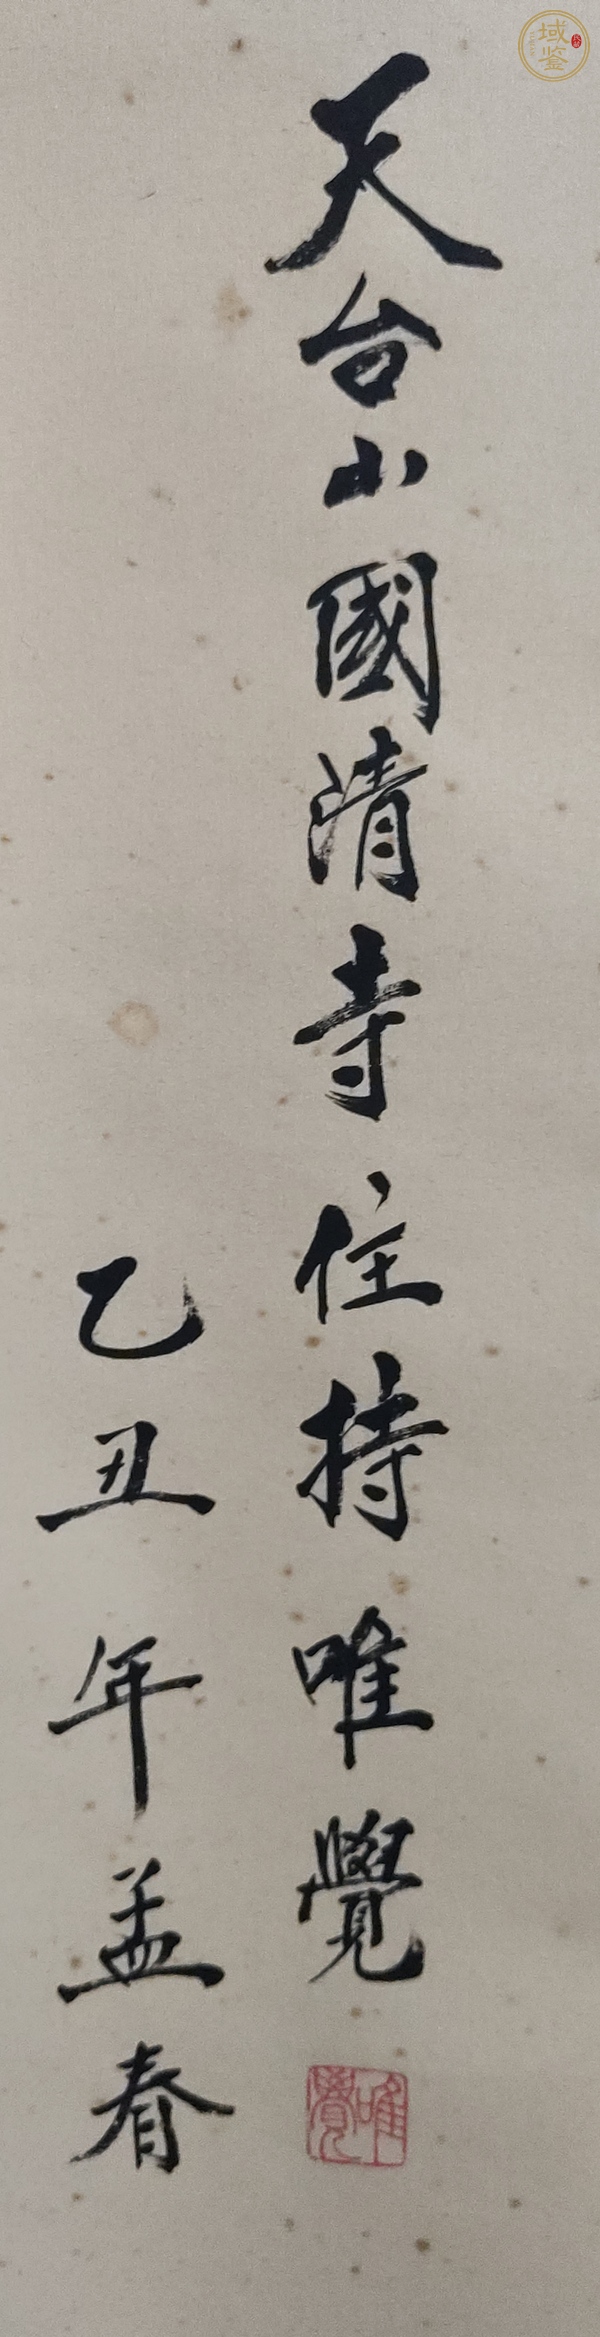 天台山國清寺住持唯覺
乙丑年孟春
唯覺
域鉴